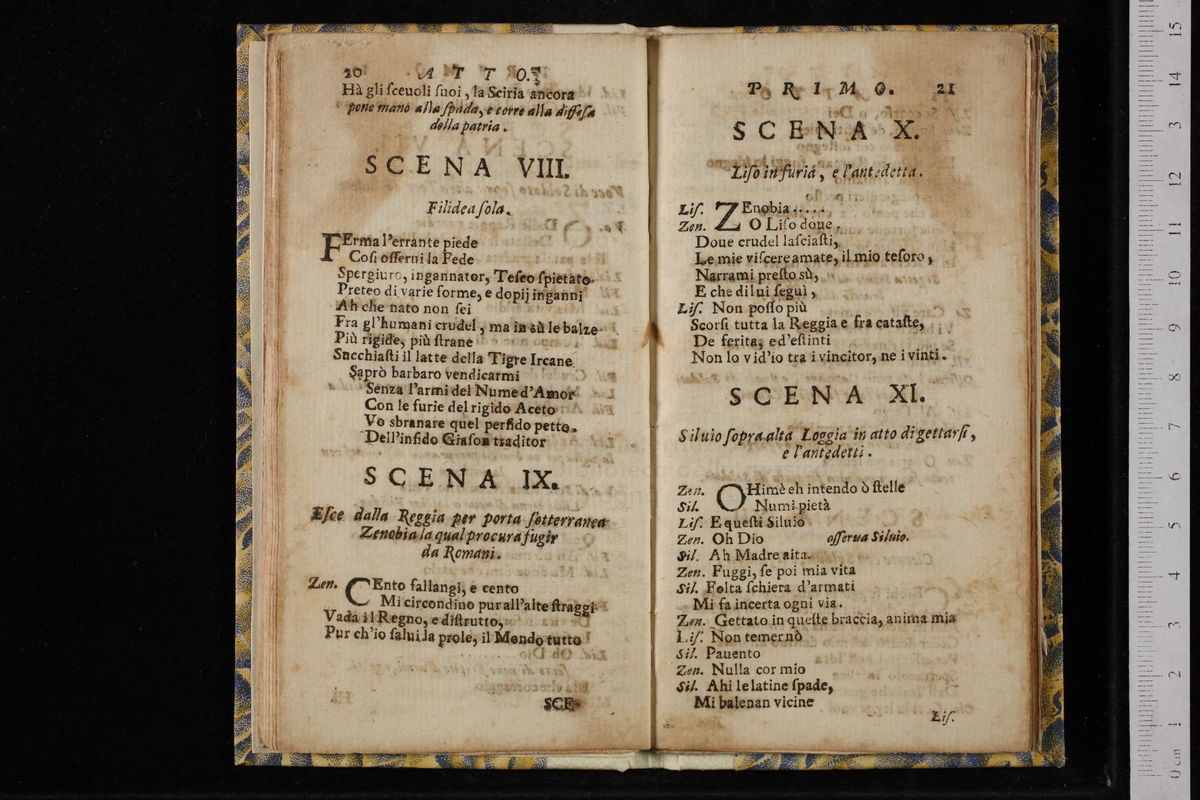 20 ATTO.
Hà gli sceuoli suoi, la Sciria ancora
pone mano alla spada, e corre alla diffesa
della patria.
SCENA VIII.
Filidea sola.
FErma l'errante piede
Cosi osserni la Fede
Spergiuro, ingannator, Teseo spietato.
Preteo di varie forme, e dopij inganni
Ah che nato non sei
Fra gl'humani crudel, ma in sù le balze
Più rigide, più strane
Succhiasti il latte della Tigre Ircane
Saprò barbaro vendicarmi
Senza l'armi del Nume d'Amor
Con le furie del rigido Aceto
Vo sbranare quel perfido petto.
Dell'infido Giason traditor
SCENA IX.
Esce dalla Reggia per porta sotterranea
Zenobia la qual procura fugir
da Romani.
Zen. CEnto fallangi, e cento
Mi circondino pur all'alte straggi
Vada il Regno, e distrutto,
Pur ch'io salui la prole, il Mondo tutto
SCE-
PRIMO. 21
SCENA X.
Liso in furia, e l'antedetta.
Lis. ZEnobia.....
Zen. O Liso doue.
Doue crudel lasciasti,
Le mie viscere amate, il mio tesoro,
Narrami presto sù,
E che di lui seguì,
Lis. Non posso più
Scorsi tutta la Reggia e fra cataste,
De ferite, ed'estinti
Non lo vid'io tra i vincitor, ne i vinti.
SCENA XI.
Siluio sopra alta Loggia in atto di gettarsi,
e l'antedetti.
Zen. OHimè eh intendo ò stelle
Sil. Numi pietà
Lis. E questi Siluio
Zen. Oh Dio osserua Siluio.
Sil. Ah Madre aita.
Zen. Fuggi, se poi mia vita
Sil. Folta schiera d'armati
Mi fa incerta ogni via.
Zen. Gettato in queste braccia, anima mia
Lis. Non temer nò
Sil. Pauento
Zen. Nulla cor mio
Sil. Ahi le latine spade,
Mi balenan vicine
Lis.
0 cm 1 2 3 4 5 6 7 8 9 10 11 12 13 14 15